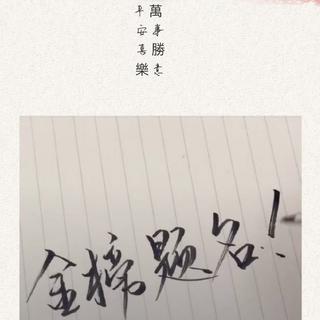 萬事勝意
平安喜樂
金榜题名!